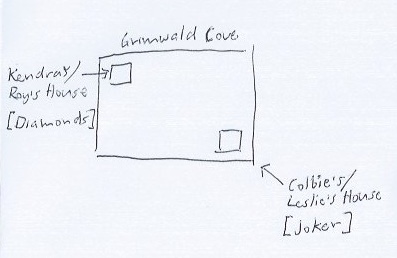 Grimwald Cove
Kendra's/
Roy's House
[Diamonds]
Colbie's/
Leslie's House
[Joker]